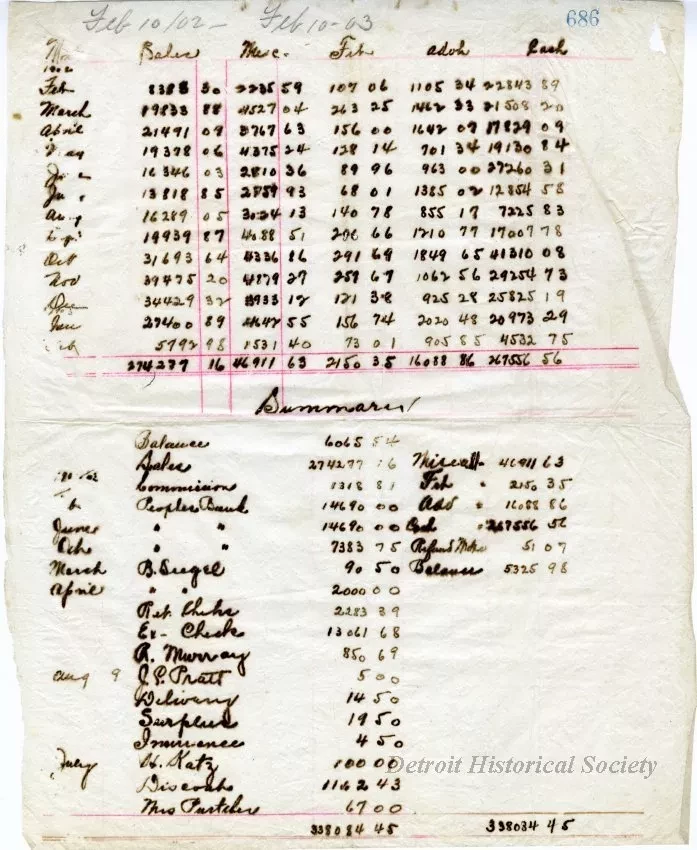 Feb 10/02 - Feb 10-03 686
Sales Misc. Frt Advh Cash
1902
Feb 8388 30 2235 59 107 06 1105 34 22843 89
March 19833 88 4527 04 263 25 1462 33 21508 20
April 21491 09 3767 63 156 00 1642 07 17829 09
May 19378 06 4375 24 128 14 701 34 19130 84
16346 03 2810 36 89 96 963 00 27260 31
13818 85 2859 93 68 01 1385 02 12854 58
Aug 16289 05 3024 13 140 78 855 17 7225 83
Sept 19939 87 4088 51 296 66 1210 77 17007 78
Oct 31693 64 4336 86 291 69 1849 65 41310 08
Nov 39475 20 4879 27 257 67 1062 56 29254 73
Dec 34429 32 3933 12 121 38 925 28 25825 19
Jan 27400 89 4642 55 156 74 2020 48 20973 29
Feb 5792 98 1531 40 73 01 905 85 4532 75
274277 16 46911 63 2150 35 16088 86 267556 56
Summary
Balance 6065 54
Sales 274277 16 Miscell- 46911 63
Commission 1318 81 Frt " 2150 35
Peoples Bank 14690 00 Adv " 16088 86
June " " 14690 00 Cash " 267556 56
Oct " " 7383 75 Refund Mdse 51 07
March B. Siegel 90 50 Balance 5325 98
April " " 2000 00
Ret. Checks 2283 39
Ex- Check 13061 68
R. Murray 850 69
Aug 9 J.P. Pratt 5 00
Delivery 14 50
Surplus 19 50
Insurance 4 50
July H. Katz 100 00
Discounts 1162 43
Mrs 67 00
338084 45 338084 45
Detroit Historical Society